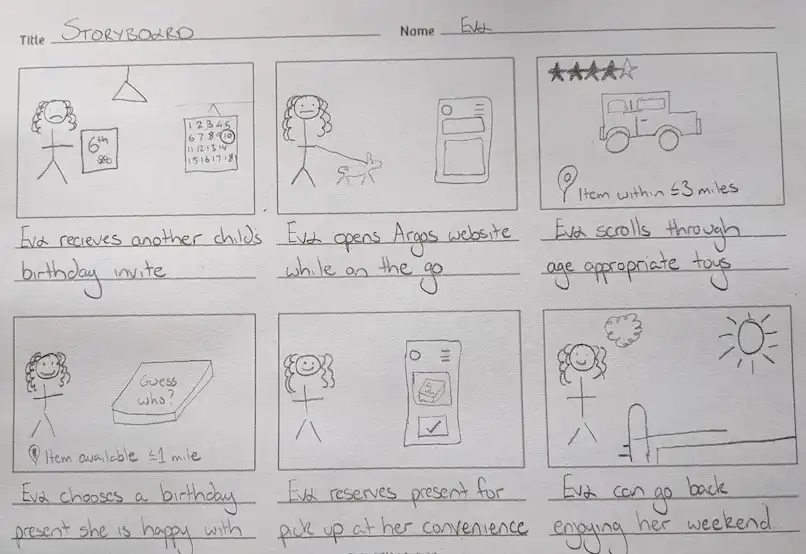 Title STORYBOARD
Name Eva
6th
1 2 3 4 5
6 7 8 9 10
11 12 13 14
15 16 17 18
Eva recieves another child's
birthday invite
Eva opens Argos website
while on the go
Item within ≤3 miles
Eva scrolls through
age appropriate toys
Guess
who?
Item available ≤1 mile
Eva chooses a birthday
present she is happy with
Eva reserves present for
pick up at her convenience
Eva can go back
enjoying her weekend